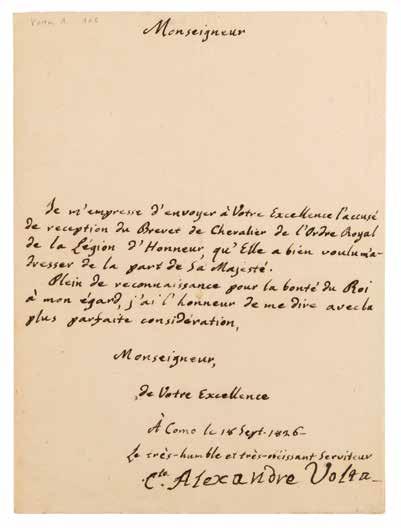 Volta A. 
Monseigneur
Je m'empresse d'envoyer à Votre Excellence l'accusé
de reception du Brevet de Chevalier de l'Ordre Royal
de la Légion d'Honneur, qu'Elle a bien voulu m'a-
dresser de la part de Sa Majesté.
Plein de reconnaissance pour la bonté du Roi
à mon égard, j'ai l'honneur de me dire avec la
plus parfaite considération,
Monseigneur,
de Votre Excellence
À Como le 18 Sept. 1826
Le très-humble et très-obéissant Serviteur
C.te Alexandre Volta